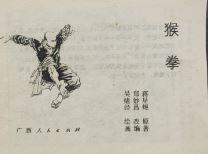 猴拳
蒋星煜 原著
郑妙昌 改编
吴绪经 绘画
广西人民出版社